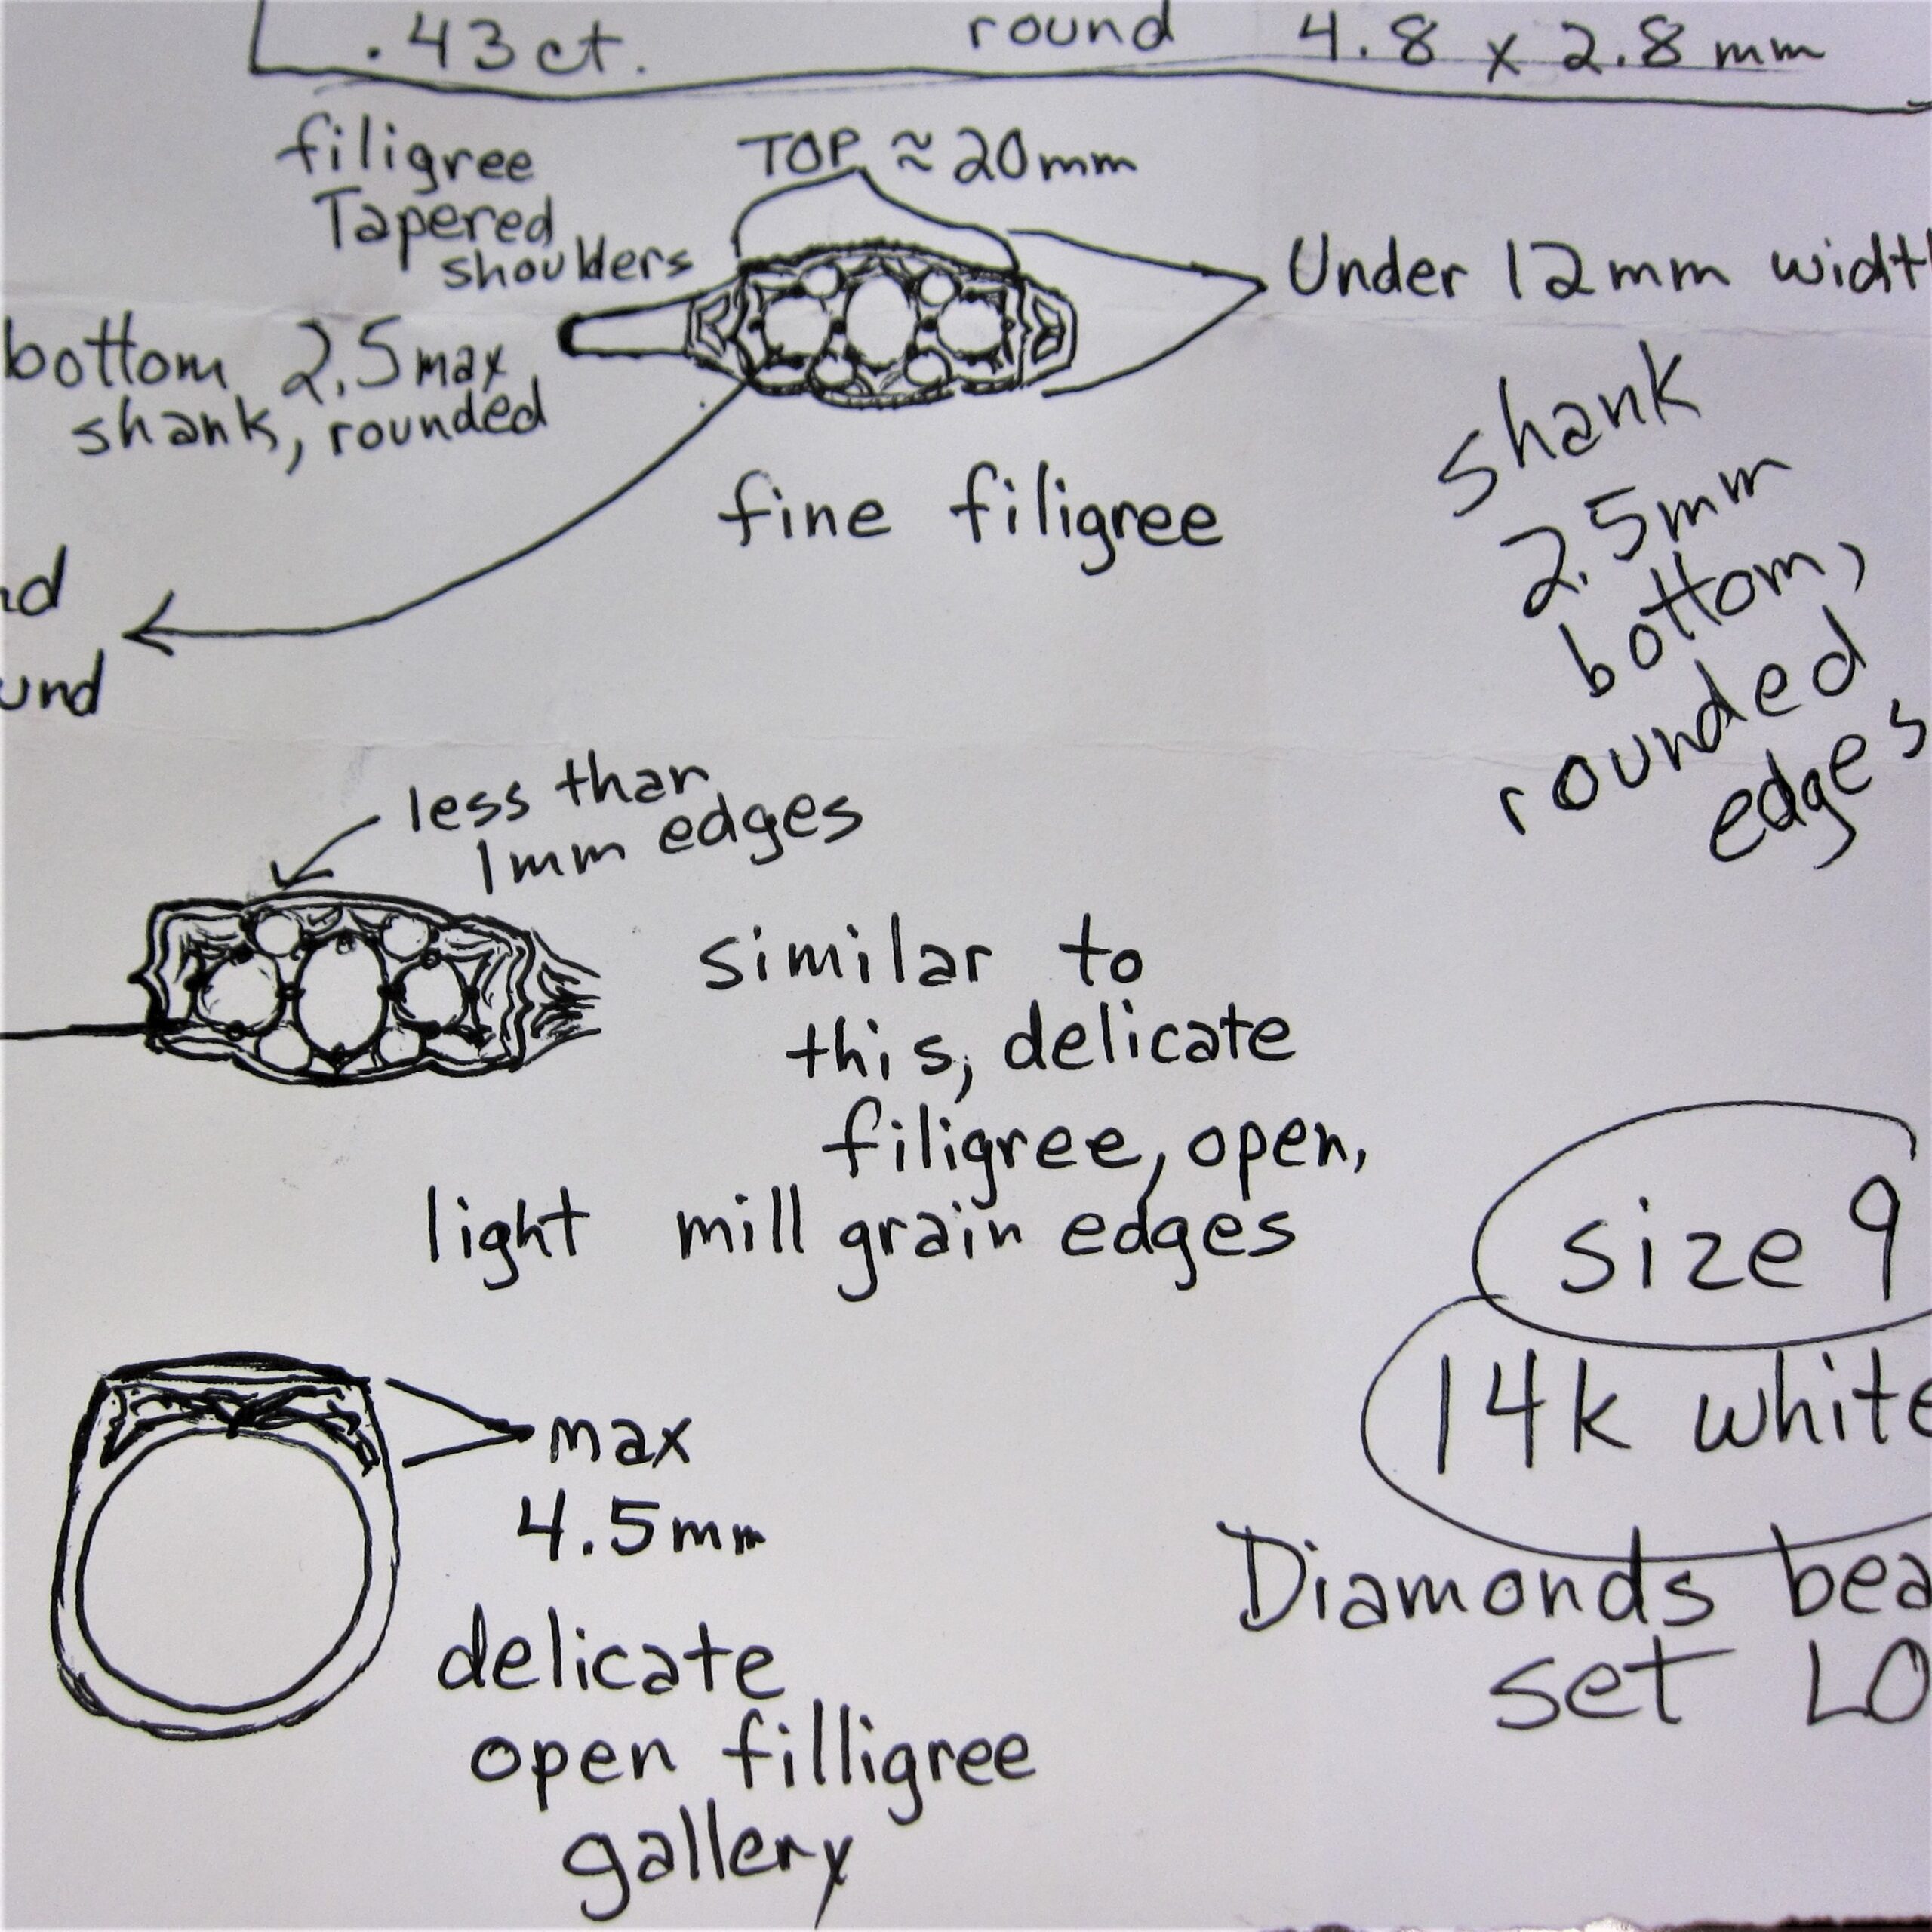 .43ct. round 4.8 x 2.8mm
filigree
Tapered
shoulders
TOP ≈ 20mm
Under 12mm
bottom 2.5max
shank, rounded
fine filigree
shank
2.5mm
bottom,
rounded
edges
less than
1mm edges
similar to
this, delicate
filigree, open,
light mill grain edges
size 9
14k white
max
4.5mm
Diamonds
set
delicate
open filligree
gallery